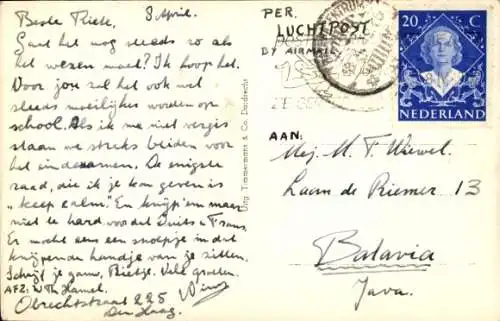 Beste Rietje, 3 April.
Gaat het nog steeds zo als
het wezen moet? Ik hoop het.
Voor jou zal het ook wel
steeds moeilijker worden op
school. Als ik me niet vergis
staan we straks beiden voor
het eindexamen. De enigste
raad, die ik je kan geven is
"keep calm". En knijp 'em maar
niet te hard, voor dat Duits en Frans.
Er mocht eens een snoepje in dat
knijpende handje van je zitten.
Schrijf je gauw, Rietje. Vele groeten.
AFZ: W Th Hamel. Wim
Obrechtstraat 225
Den Haag.
Uitg. Timmermans & Co. Dordrecht
PER
LUCHTPOST
BY AIRMAIL
20 C
NEDERLAND
AAN:
Mej. M. T. Wiewel.
Laan de Riemer 13
Batavia
Java.